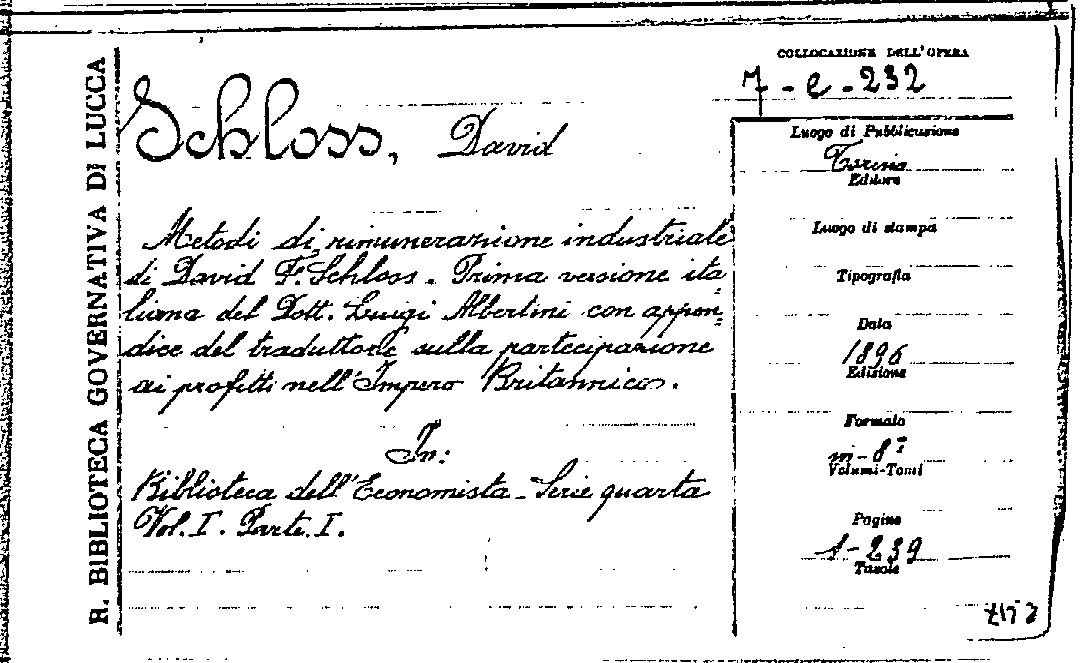 R. BIBLIOTECA GOVERNATIVA DI LUCCA
COLLOCAZIONE DELL'OPERA
7-e-232
Schloss, David
Metodi di rimunerazione industriale
di David F. Schloss. Prima versione ita
liana del Dott. Luigi Albertini con appen=
dice del traduttore sulla partecipazione
ai profitti nell'Impero Britannico.
In:
Biblioteca dell'Economista - Serie quarta
Vol. I. Parte. I.
Luogo di Pubblicazione
Torino
Editore
Luogo di stampa
Tipografia
Data
1896
Edizione
Formato
in-8°
Volumi-Tomi
Pagine
1-239
Tavole